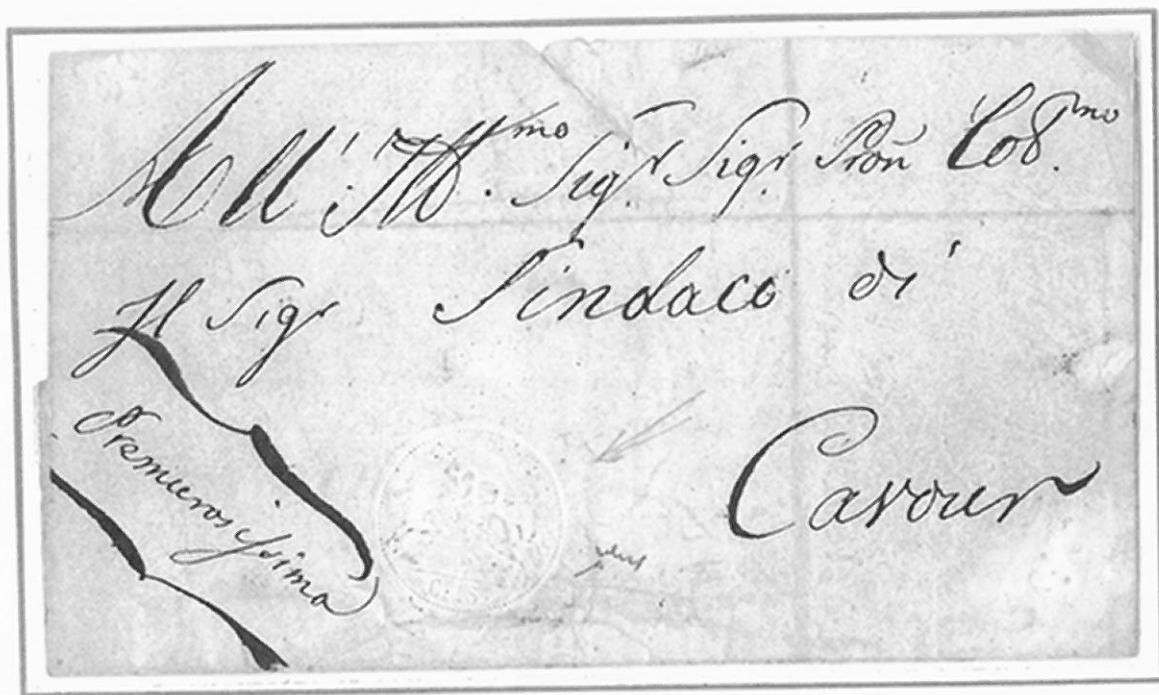 All' Ill.mo Sig.r Sig.r Pron Col.mo
Il Sigr Sindaco di
Cavour
Premurosissima